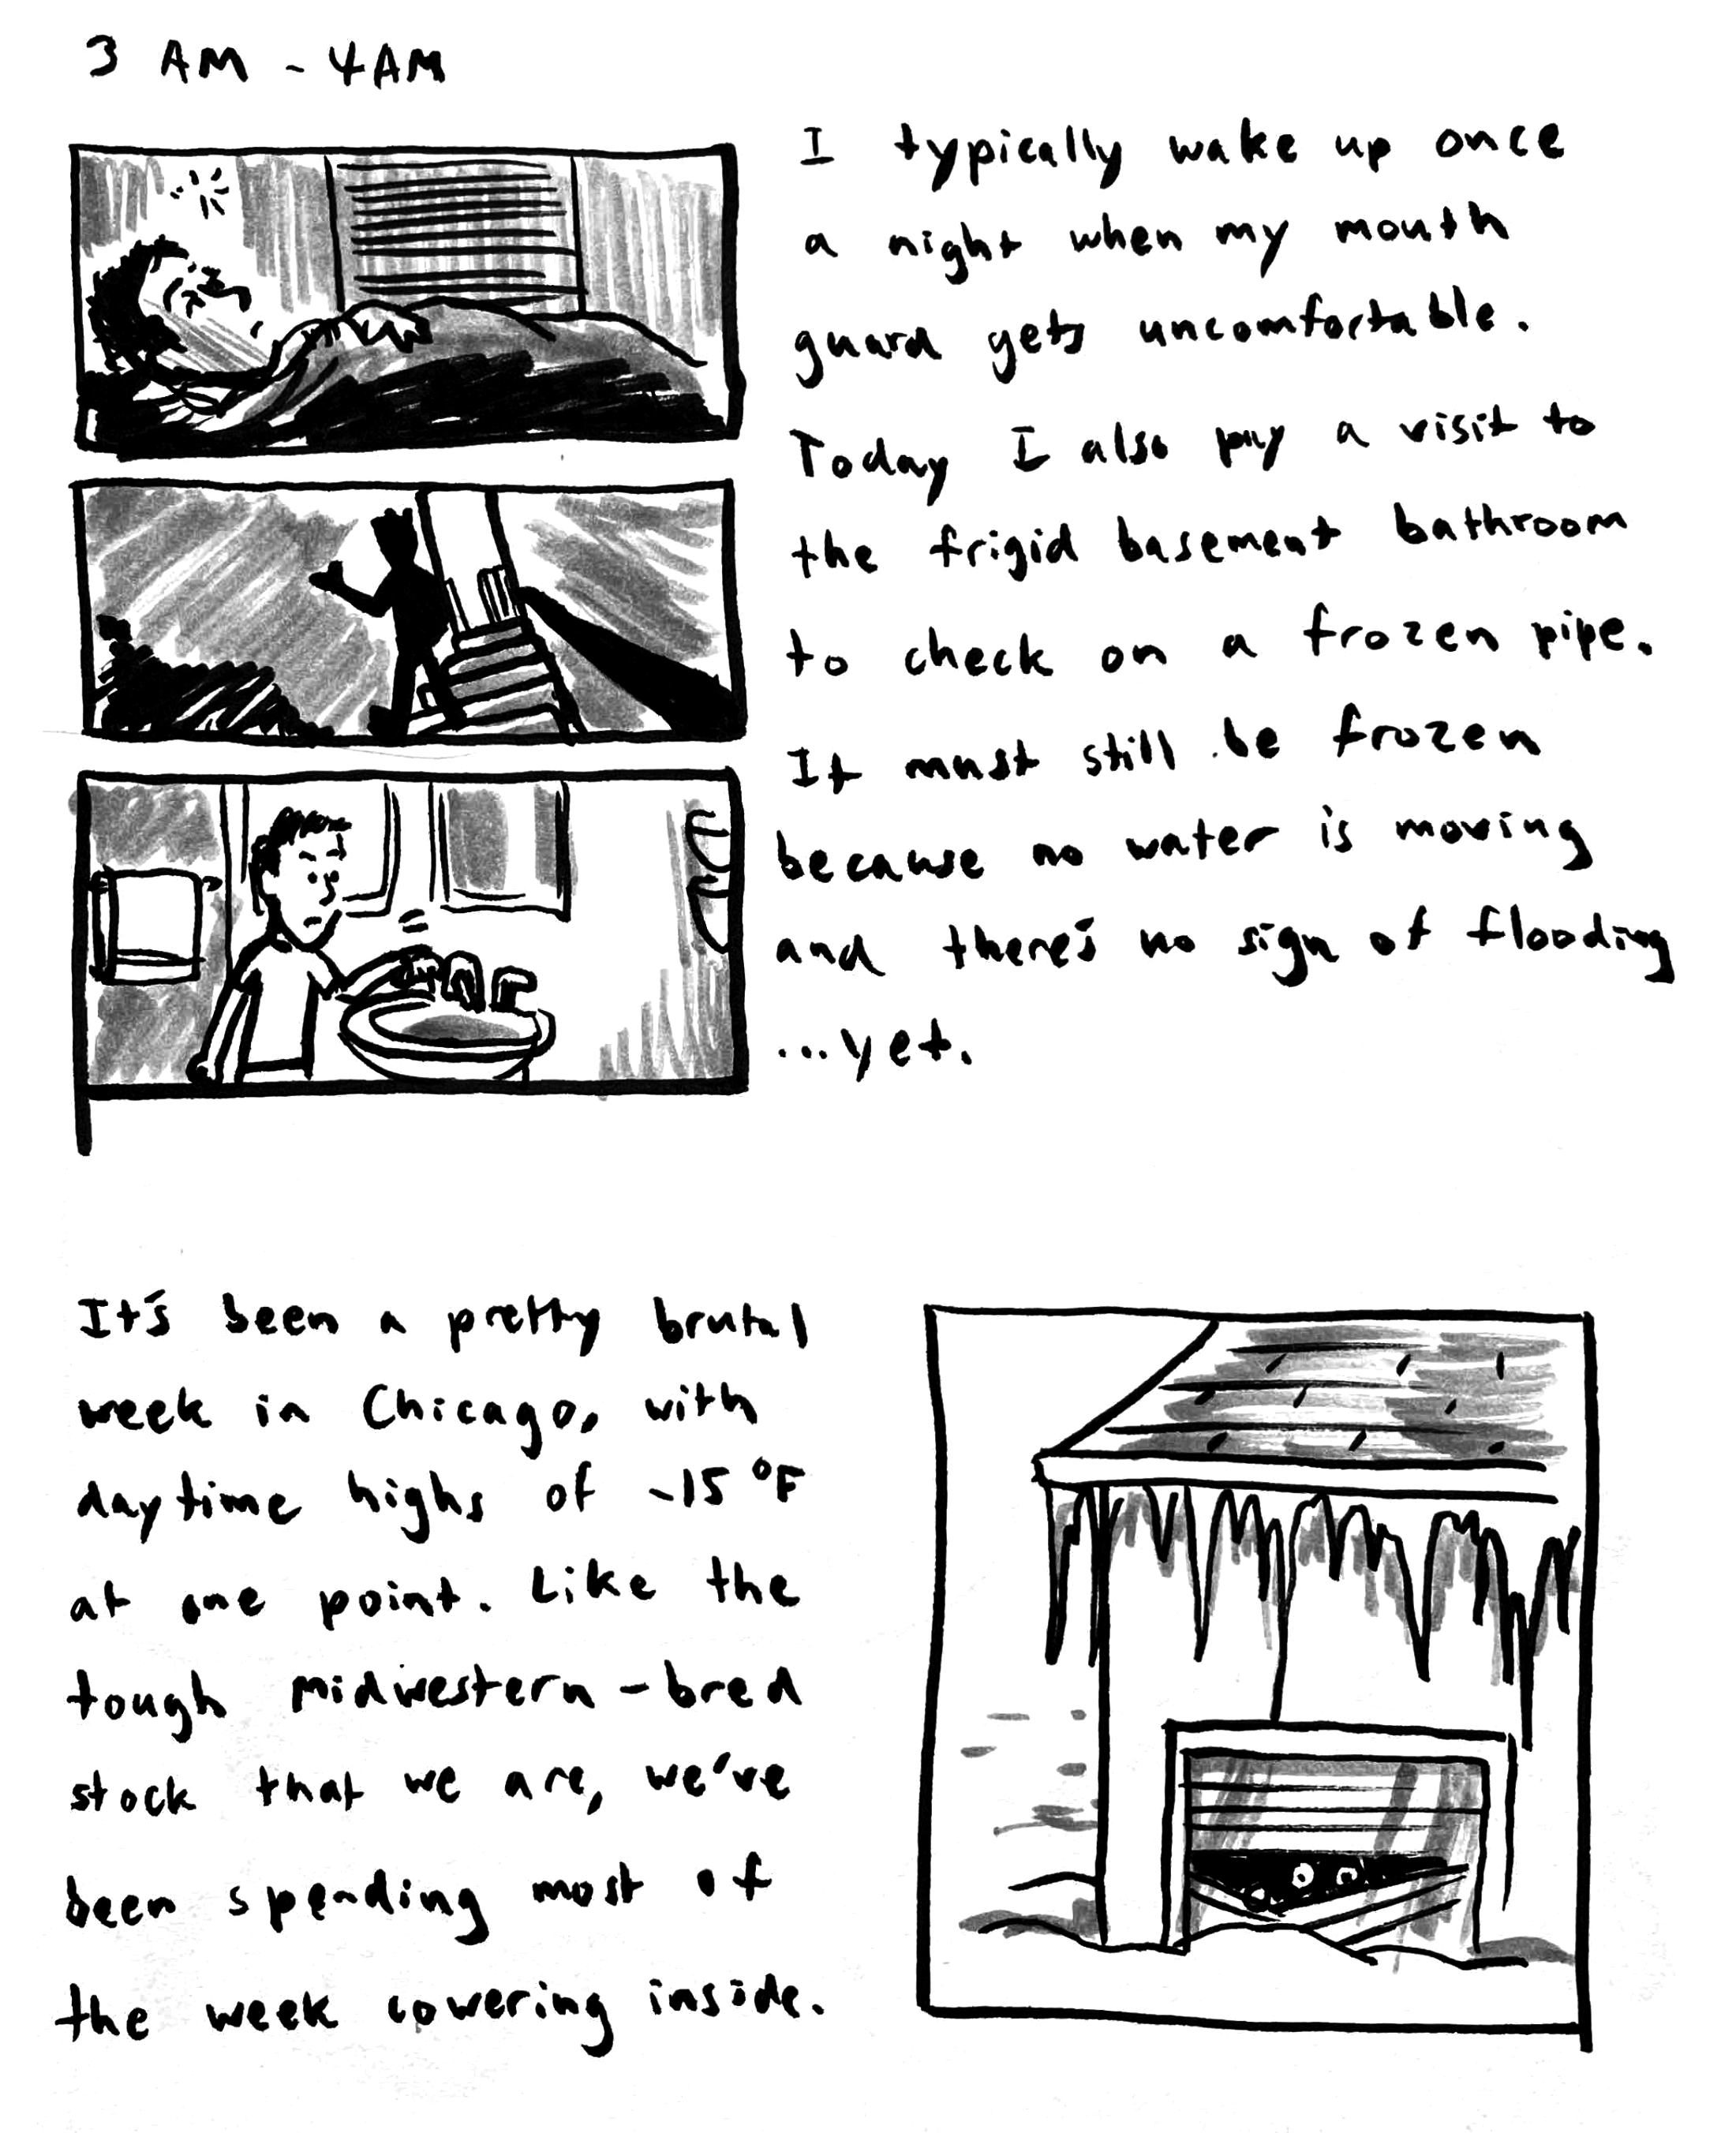 3 AM - 4AM
I typically wake up once
a night when my mouth
guard gets uncomfortable.
Today I also pay a visit to
the frigid basement bathroom
to check on a frozen pipe.
It must still be frozen
because no water is moving
and there's no sign of flooding
...yet.
It's been a pretty brutal
week in Chicago, with
daytime highs of -15°F
at one point. Like the
tough midwestern-bred
stock that we are, we've
been spending most of
the week cowering inside.